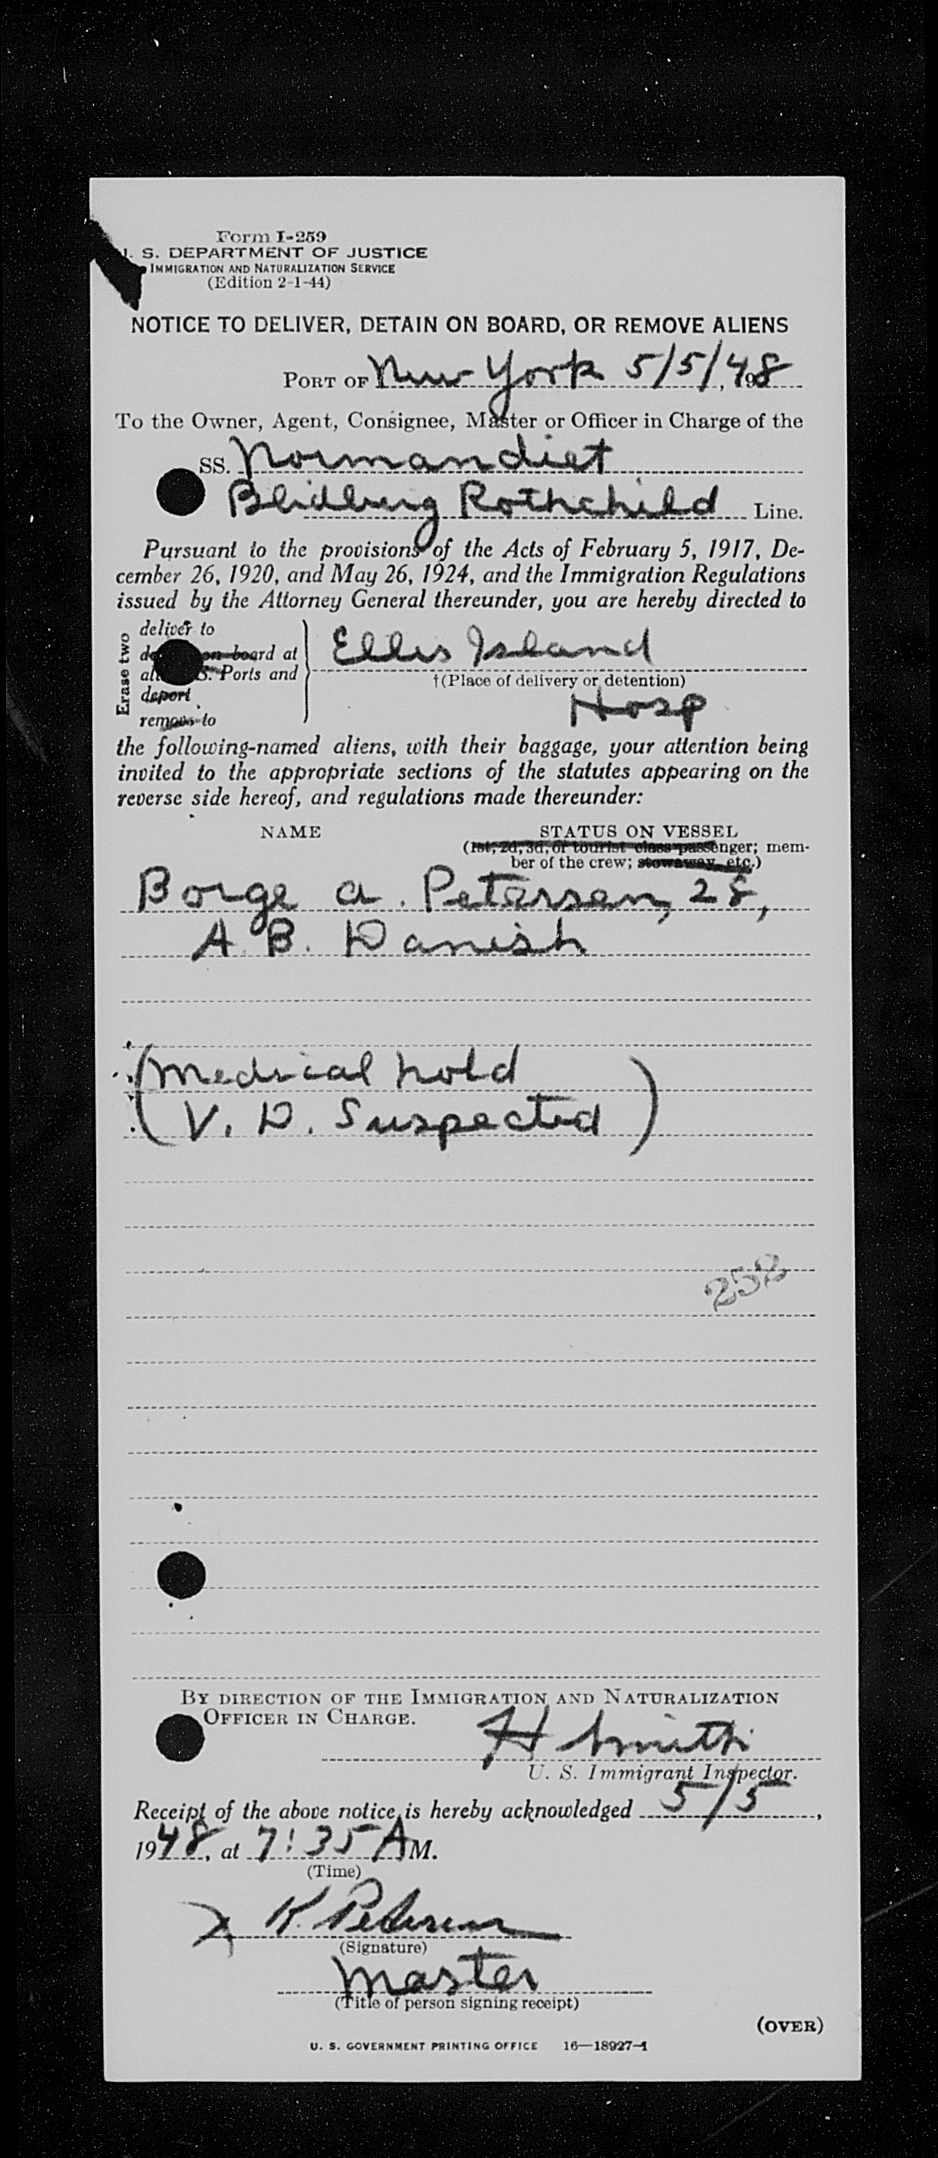 Form I-259
U. S. DEPARTMENT OF JUSTICE
IMMIGRATION AND NATURALIZATION SERVICE
(Edition 2-1-44)
NOTICE TO DELIVER, DETAIN ON BOARD, OR REMOVE ALIENS
PORT OF New York 5/5/, 1948
To the Owner, Agent, Consignee, Master or Officer in Charge of the
SS. Normandiet
Blidberg Rothchild Line.
Pursuant to the provisions of the Acts of February 5, 1917, De-
cember 26, 1920, and May 26, 1924, and the Immigration Regulations
issued by the Attorney General thereunder, you are hereby directed to
Erase two
deliver to
on board at Ellis Island
Ports and †(Place of delivery or detention)
deport Hosp
remove to
the following-named aliens, with their baggage, your attention being
invited to the appropriate sections of the statutes appearing on the
reverse side hereof, and regulations made thereunder:
NAME STATUS ON VESSEL
(1st, 2d, 3d, or tourist class passenger; mem-
ber of the crew; stowaway, etc.)
Borge A. Petersen, 28,
A. B. Danish
(Medical hold
(V. D. Suspected)
252
BY DIRECTION OF THE IMMIGRATION AND NATURALIZATION
OFFICER IN CHARGE.
H Smith
U. S. Immigrant Inspector.
Receipt of the above notice is hereby acknowledged 5/5,
1948, at 7:35 AM.
(Time)
X K. Petersen
(Signature)
Master
(Title of person signing receipt)
(OVER)
U. S. GOVERNMENT PRINTING OFFICE 16—18927-1